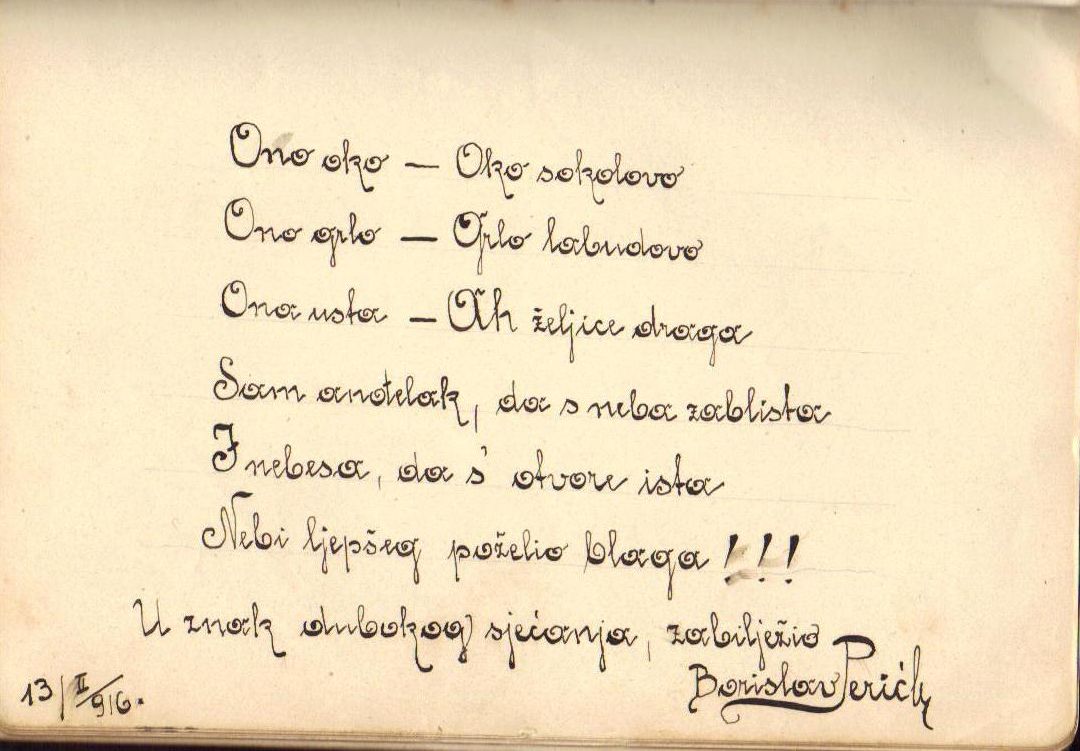 Ono oko — Oko sokolovo
Ono grlo — Grlo labudovo
Ona usta — Ah željice draga
Sam anđelak, da s neba zablista
I nebesa, da s' otvore ista
Nebi ljepšeg poželio blaga!!!
U znak dubokog sjećanja, zabilježio
Borislav Perić
13/II/916.